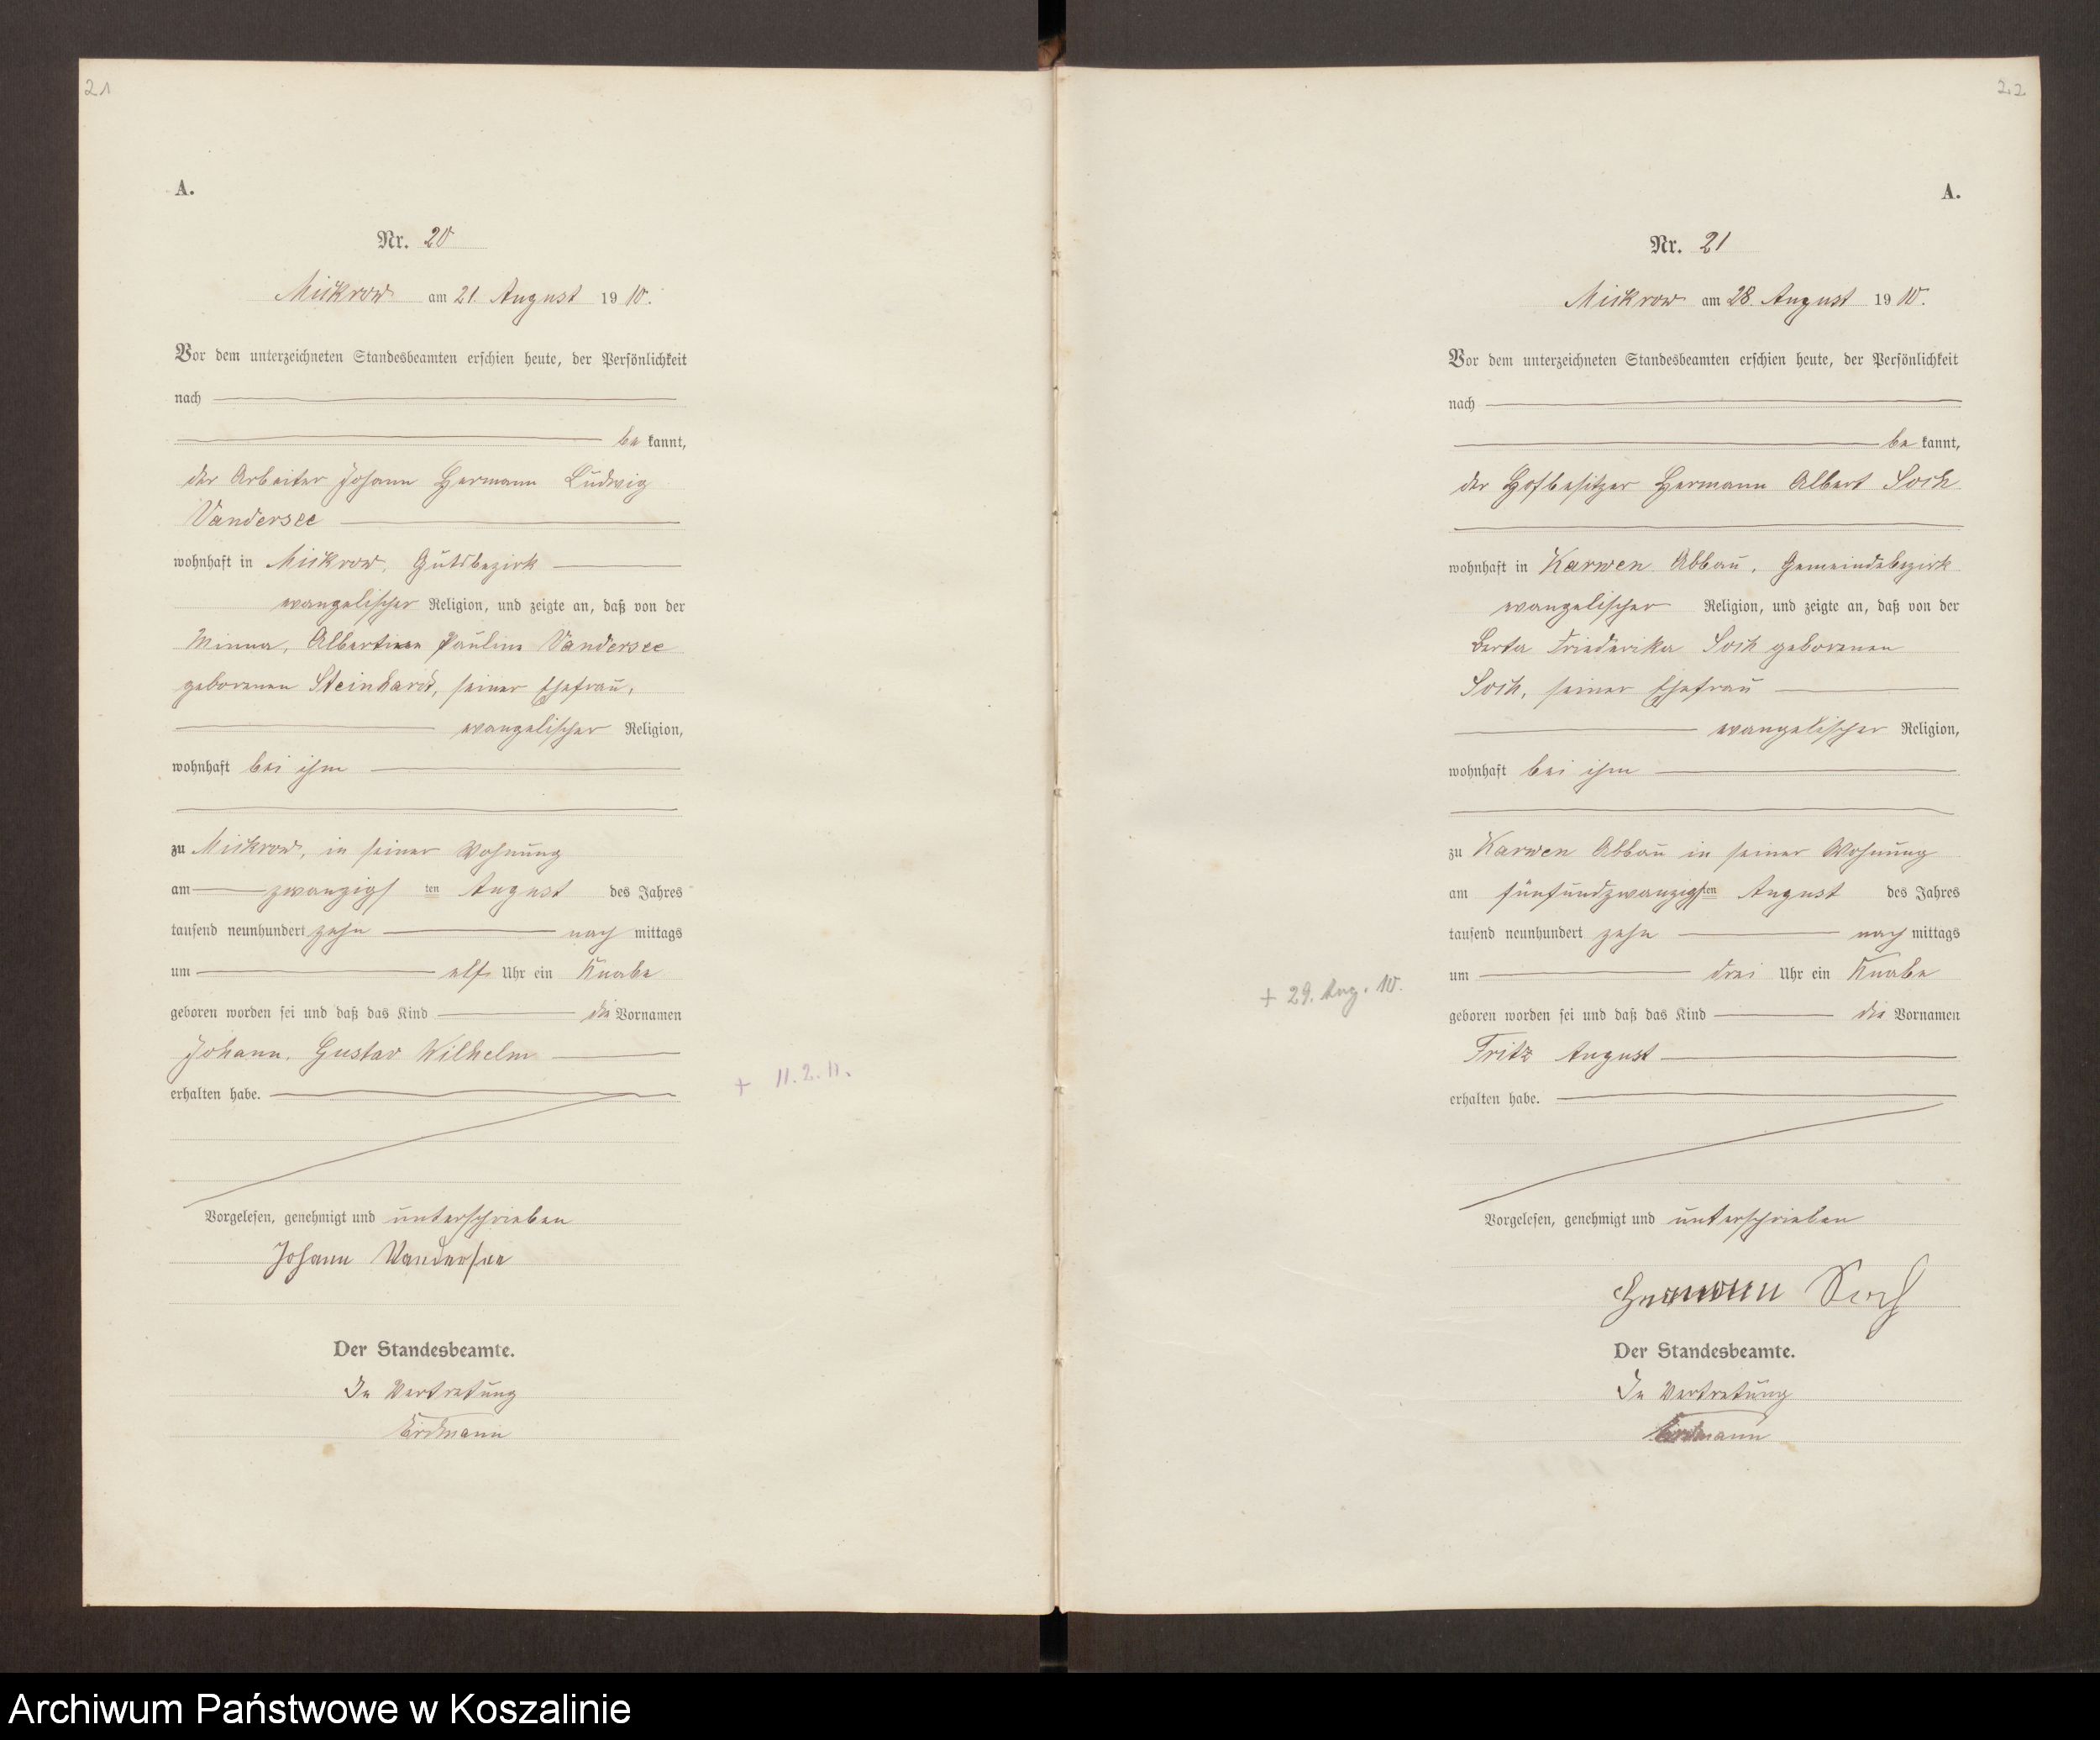 21
A.
Nr. 20
Mickrow am 21. August 1910.
Vor dem unterzeichneten Standesbeamten erschien heute, der Persönlichkeit
nach
be kannt,
der Arbeiter Johann Hermann Ludwig
Vandersee
wohnhaft in Mickrow, Gutsbezirk
evangelischer Religion, und zeigte an, daß von der
Minna, Albertine Pauline Vandersee
geborenen Steinhardt, seiner Ehefrau,
evangelischer Religion,
wohnhaft bei ihm
zu Mickrow, in seiner Wohnung
am zwanzigsten August des Jahres
tausend neunhundert zehn nach mittags
um elf Uhr ein Knabe
geboren worden sei und daß das Kind die Vornamen
Johann, Gustav Wilhelm
erhalten habe.
+ 11.2.11.
Vorgelesen, genehmigt und unterschrieben
Johann Vandersee
Der Standesbeamte.
In Vertretung
Erdmann
22
A.
Nr. 21
Mickrow am 28. August 1910.
Vor dem unterzeichneten Standesbeamten erschien heute, der Persönlichkeit
nach
be kannt,
der Hofbesitzer Hermann Albert
wohnhaft in Karwen Abbau, Gemeindebezirk
evangelischer Religion, und zeigte an, daß von der
Berta Friederike geborenen
seiner Ehefrau
evangelischer Religion,
wohnhaft bei ihm
zu Karwen Abbau in seiner Wohnung
am fünfundzwanzigsten August des Jahres
tausend neunhundert zehn nach mittags
um drei Uhr ein Knabe
+ 29. Aug. 10.
geboren worden sei und daß das Kind die Vornamen
Fritz August
erhalten habe.
Vorgelesen, genehmigt und unterschrieben
Hermann
Der Standesbeamte.
In Vertretung
Erdmann
Archiwum Państwowe w Koszalinie